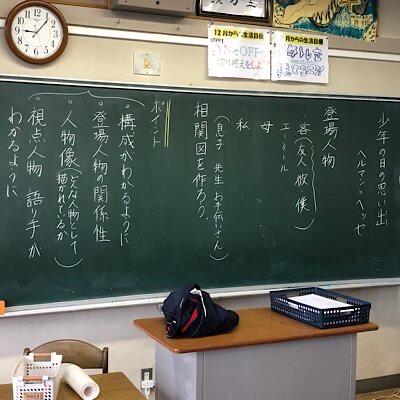 少年の日の思い出
ヘルマン・ヘッセ
登場人物
客(友人 彼 僕)
エーミール
母
私
(息子 先生 お手伝いさん)
相関図を作ろう。
ポイント
・構成がわかるように
・登場人物の関係性
・人物像(どんな人物として描かれているか)
・視点人物 語り手がわかるように
12月からの生活目標
月からの生活目標